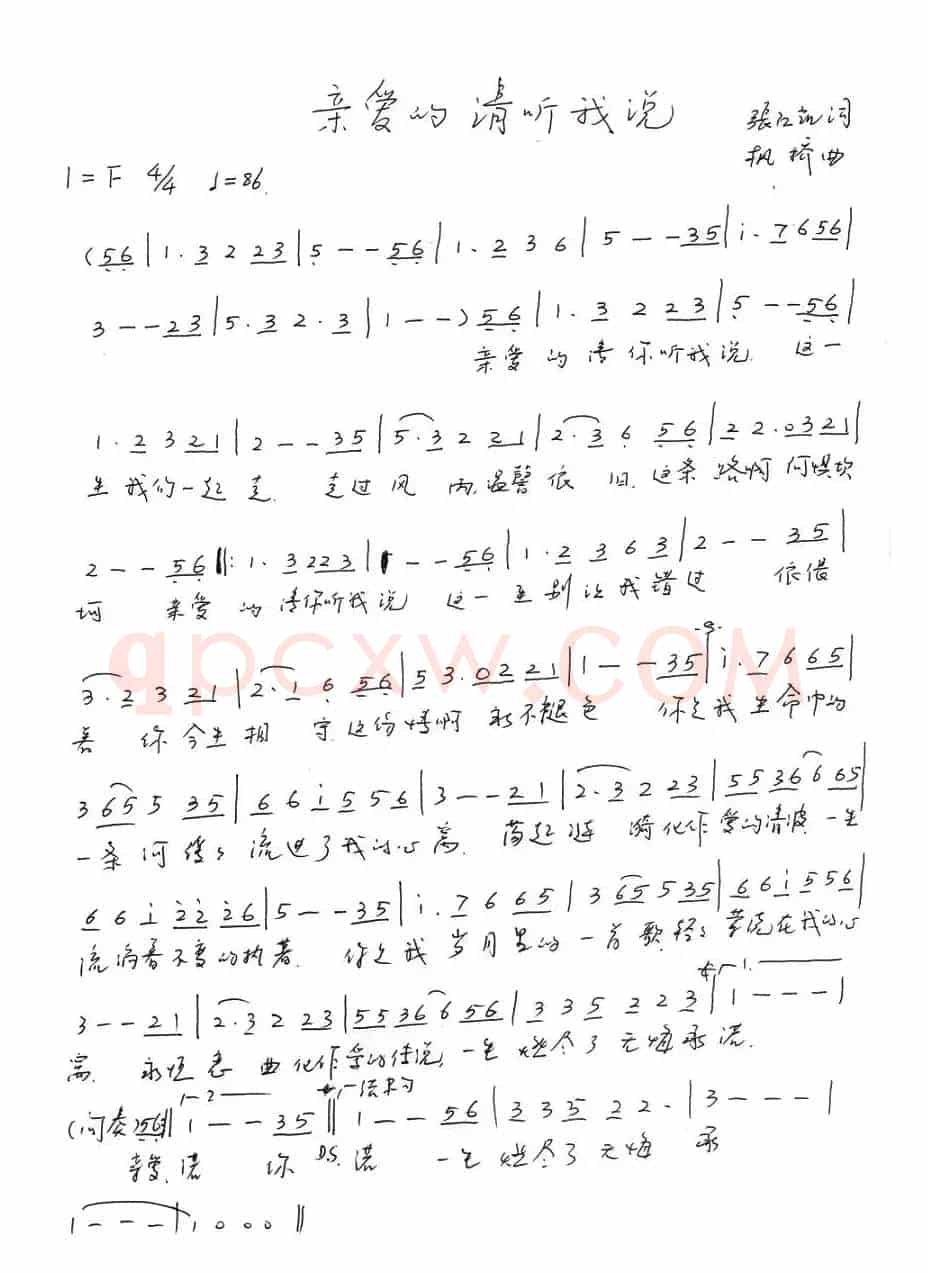 亲爱的请听我说
張江 词
枫桥曲
1=F 4/4 ♩=86
(56|1.3 2 23|5--56|1.2 3 6|5--35|i.7 6 56|
3--23|5.3 2.3|1--)56|1.3 2 23|5--56|
亲爱的请你听我说 这一
1.2 3 21|2--35|5.3 2 21|2.3 6 56|2 2.0 321|
生我们一起走 走过风雨温馨依旧 这条路啊何惧坎
2--56‖:1.3 22 3|1--56|1.2 3 6 3|2--35|
坷 亲爱的请你听我说 这一生别让我错过 依偎
3.2 3 21|2.1 6 56|5 3.0 2 21|1--35|i.7 6 65|
着你今生相守 这份情啊永不褪色 你是我生命中的
3 65 5 35|6 6 i 5 5 6|3--21|2.3 2 23|55 36 6 65|
一条河 缓缓流进了我的心窝 荡起涟漪化作爱的清波 一生
6 6 i 22 26|5--35|i.7 6 65|3 65 5 35|6 6 i 5 5 6|
流淌着不变的执著 你是我岁月里的一首歌 轻轻萦绕在我的心
3--21|2.3 2 23|55 36 6 56|3 3 5 2 2 3|1---|
窝 永恒恋曲化作爱的传说 一生 尽了无悔承诺
(间奏)56‖1--35‖1--56|3 3 5 2 2.|3---|
亲爱 诺 你 D.S. 诺 一生 尽了无悔承
1---|1 0 0 0‖
qpcxw.com